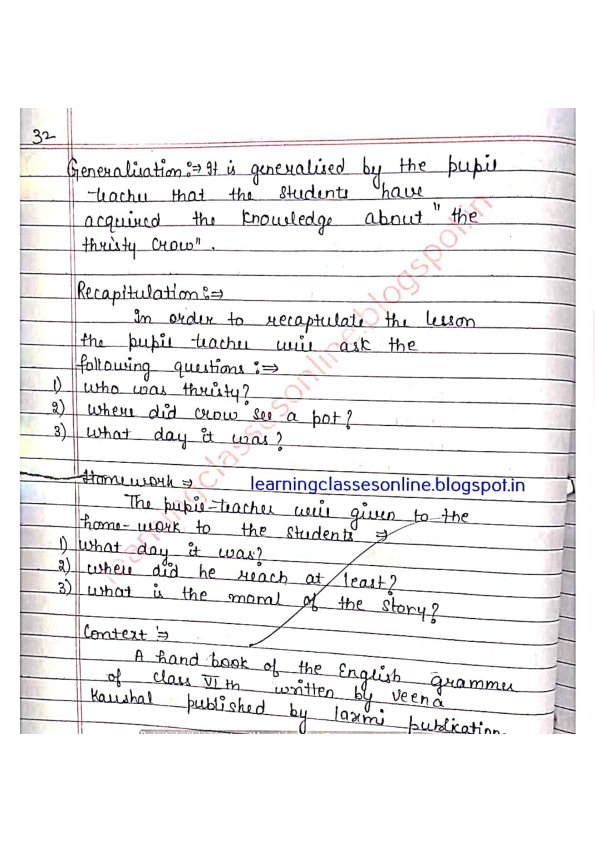 32
Generalisation:⇒ It is generalised by the pupil
-teacher that the students have
acquired the knowledge about "the
thristy crow".
Recapitulation:⇒
In order to recaptulate the lesson
the pupil-teacher will ask the
following questions:⇒
1) who was thristy?
2) where did crow see a pot?
3) what day it was?
Homework ⇒
learningclassesonline.blogspot.in
The pupil-teacher will given to the
home-work to the students ⇒
1) what day it was?
2) where did he reach at least?
3) what is the moral of the story?
Context:⇒
A hand book of the English grammer
of class VIth written by veena
Kaushal published by laxmi publication.
learningclassesonline.blogspot.in